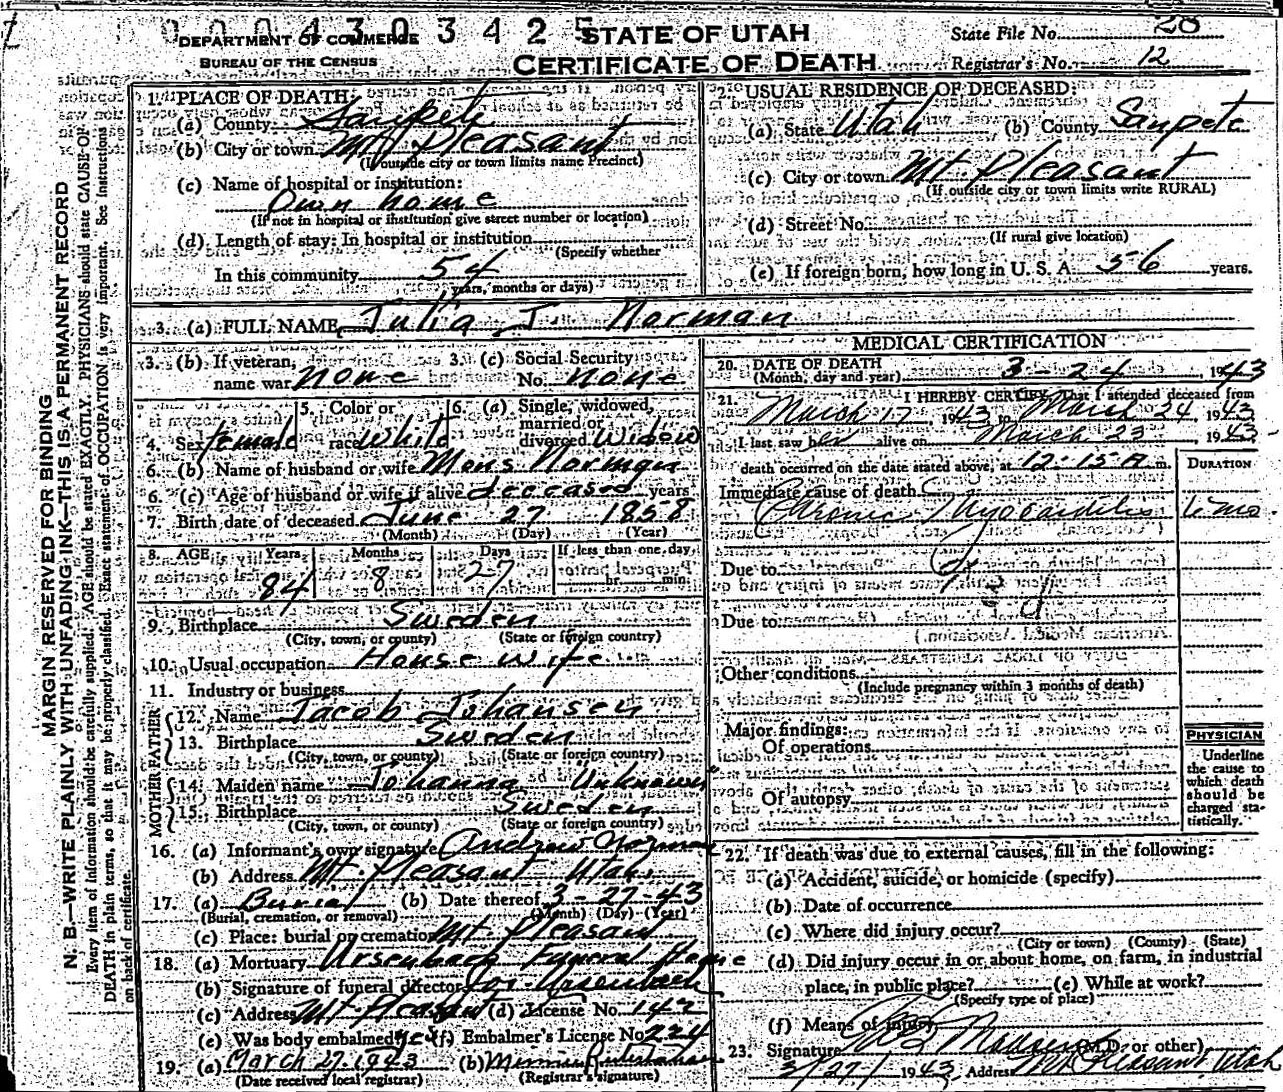 0 0 0 4 3 0 3 4 2 5
DEPARTMENT OF COMMERCE
BUREAU OF THE CENSUS
STATE OF UTAH
CERTIFICATE OF DEATH
State File No. 20
Registrar's No. 12
MARGIN RESERVED FOR BINDING
N. B.—WRITE PLAINLY WITH UNFADING INK—THIS IS A PERMANENT RECORD
Every item of information should be carefully supplied. AGE should be stated EXACTLY. PHYSICIANS should state CAUSE OF
DEATH in plain terms, so that it may be properly classified. Exact statement of OCCUPATION is very important. See Instructions
on back of certificate.
1. PLACE OF DEATH:
(a) County Sanpete
(b) City or town Mt Pleasant
(If outside city or town limits name Precinct)
(c) Name of hospital or institution:
Own home
(If not in hospital or institution give street number or location)
(d) Length of stay: In hospital or institution
(Specify whether
In this community 54
years, months or days)
2. USUAL RESIDENCE OF DECEASED:
(a) State Utah (b) County Sanpete
(c) City or town Mt. Pleasant
(If outside city or town limits write RURAL)
(d) Street No.
(If rural give location)
(e) If foreign born, how long in U. S. A. 56 years.
3. (a) FULL NAME Julia J Norman
3. (b) If veteran, name war none 3. (c) Social Security No. none
4. Sex female 5. Color or race White 6. (a) Single, widowed, married or divorced Widow
6. (b) Name of husband or wife Mons Norman
6. (c) Age of husband or wife if alive deceased years
7. Birth date of deceased June 27 1858
(Month) (Day) (Year)
8. AGE Years Months Days If less than one day
84 8 27 hr. min.
9. Birthplace Sweden
(City, town, or county) (State or foreign country)
10. Usual occupation House wife
11. Industry or business
FATHER
12. Name Jacob Johansen
13. Birthplace Sweden
(City, town, or county) (State or foreign country)
MOTHER
14. Maiden name Johanna Unknown
15. Birthplace Sweden
(City, town, or county) (State or foreign country)
16. (a) Informant's own signature Andrew Norman
(b) Address Mt. Pleasant Utah
17. (a) Burial (b) Date thereof 3-27-43
(Burial, cremation, or removal) (Month) (Day) (Year)
(c) Place: burial or cremation Mt. Pleasant
18. (a) Mortuary Ursenbach Funeral Home
(b) Signature of funeral director Ursenbach
(c) Address Mt. Pleasant (d) License No. 142
(e) Was body embalmed? yes (f) Embalmer's License No. 224
19. (a) March 27, 1943 (b)
(Date received local registrar) (Registrar's signature)
MEDICAL CERTIFICATION
20. DATE OF DEATH
(Month, day and year) 3-24, 1943
21. I HEREBY CERTIFY, That I attended deceased from
March 17, 1943, to March 24, 1943
I last saw her alive on March 23 1943
death occurred on the date stated above, at 12:15 A m.
DURATION
Immediate cause of death
Chronic Myocarditis 6 mo.
Due to
Due to
Other conditions
(Include pregnancy within 3 months of death)
Major findings:
Of operations
Of autopsy
PHYSICIAN
Underline
the cause to
which death
should be
charged sta-
tistically.
22. If death was due to external causes, fill in the following:
(a) Accident, suicide, or homicide (specify)
(b) Date of occurrence
(c) Where did injury occur?
(City or town) (County) (State)
(d) Did injury occur in or about home, on farm, in industrial
place, in public place? (e) While at work?
(Specify type of place)
(f) Means of injury
23. Signature Madsen (M.D. or other)
3/27/1943 Address Mt Pleasant, Utah